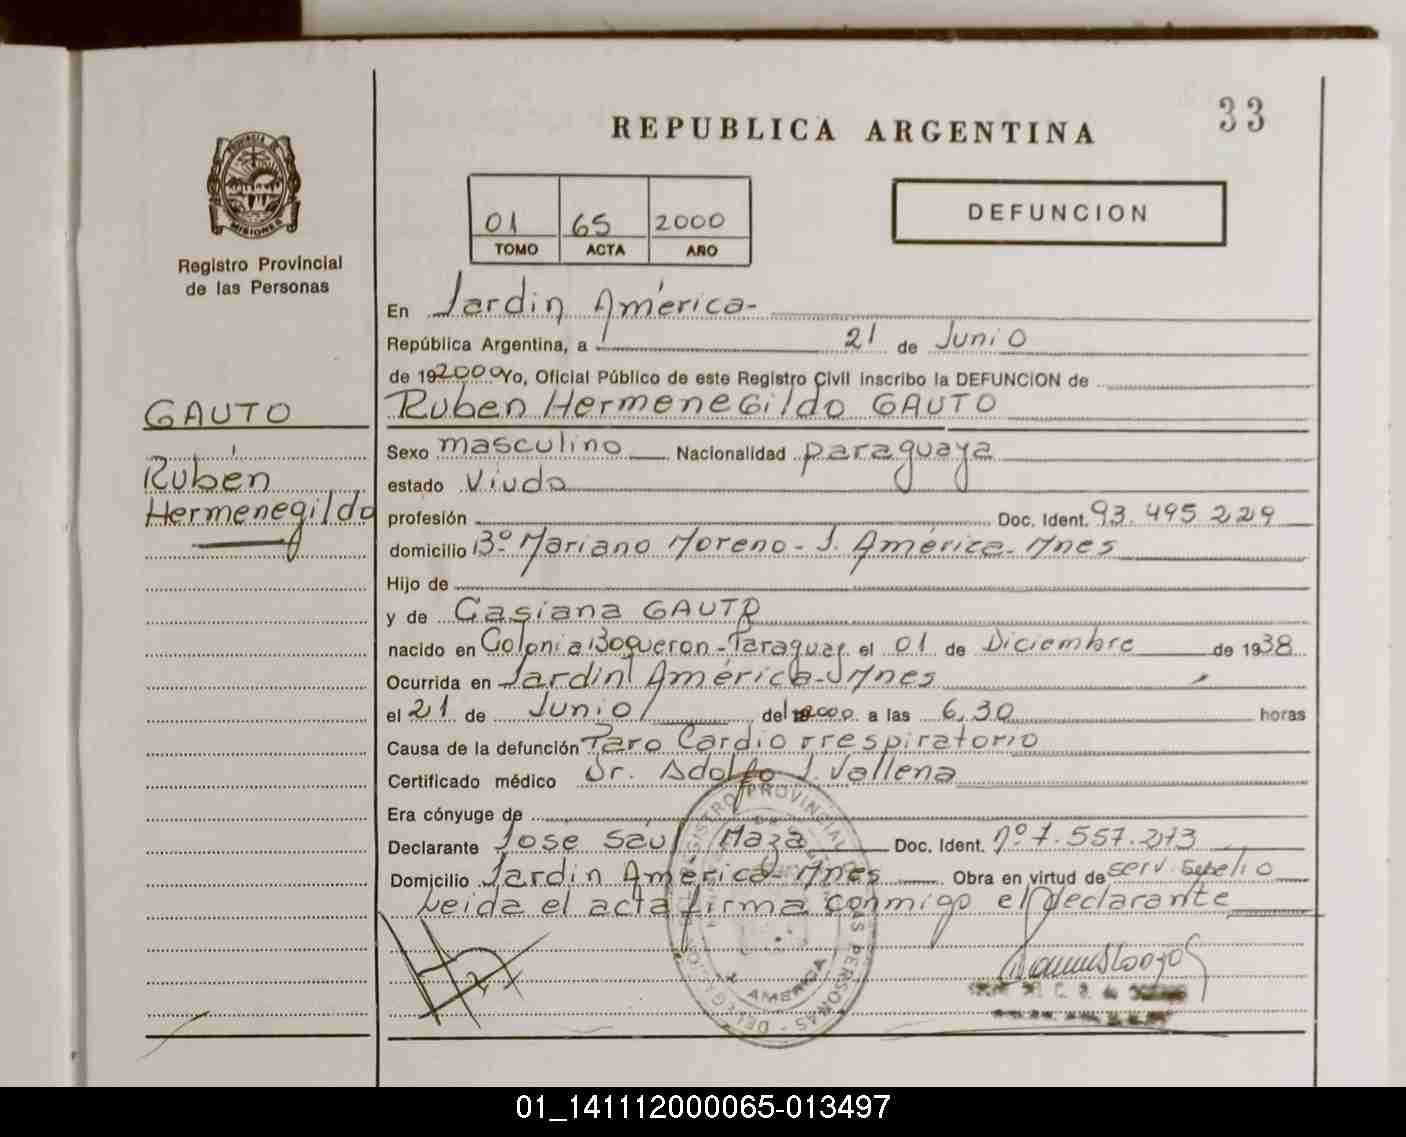 33
REPUBLICA ARGENTINA
PROVINCIA DE
MISIONES
Registro Provincial
de las Personas
DEFUNCION
01 65 2000
TOMO ACTA AÑO
En Jardin América-
República Argentina, a 21 de Junio
de 192000 Yo, Oficial Público de este Registro Civil inscribo la DEFUNCION de
GAUTO
Ruben Hermenegildo GAUTO
Rubén
Hermenegildo
Sexo masculino Nacionalidad paraguaya
estado Viudo
profesión Doc. Ident. 93.495.229
domicilio Bº Mariano Moreno - J. América - Mnes
Hijo de
y de Casiana GAUTO
nacido en Colonia Boqueron - Paraguay el 01 de Diciembre de 1938
Ocurrida en Jardin América - Mnes
el 21 de Junio del 2000 a las 6,30 horas
Causa de la defunción Paro Cardiorrespiratorio
Certificado médico Dr. Adolfo J. Vallena
Era cónyuge de
Declarante José Saúl Maza Doc. Ident. nº 7.557.273
Domicilio Jardin América - Mnes Obra en virtud de serv. Sepelio
Leida el acta firma conmigo el declarante
REGISTRO PROVINCIAL DE LAS PERSONAS - DELEGACION
J. AMERICA
01_141112000065-013497